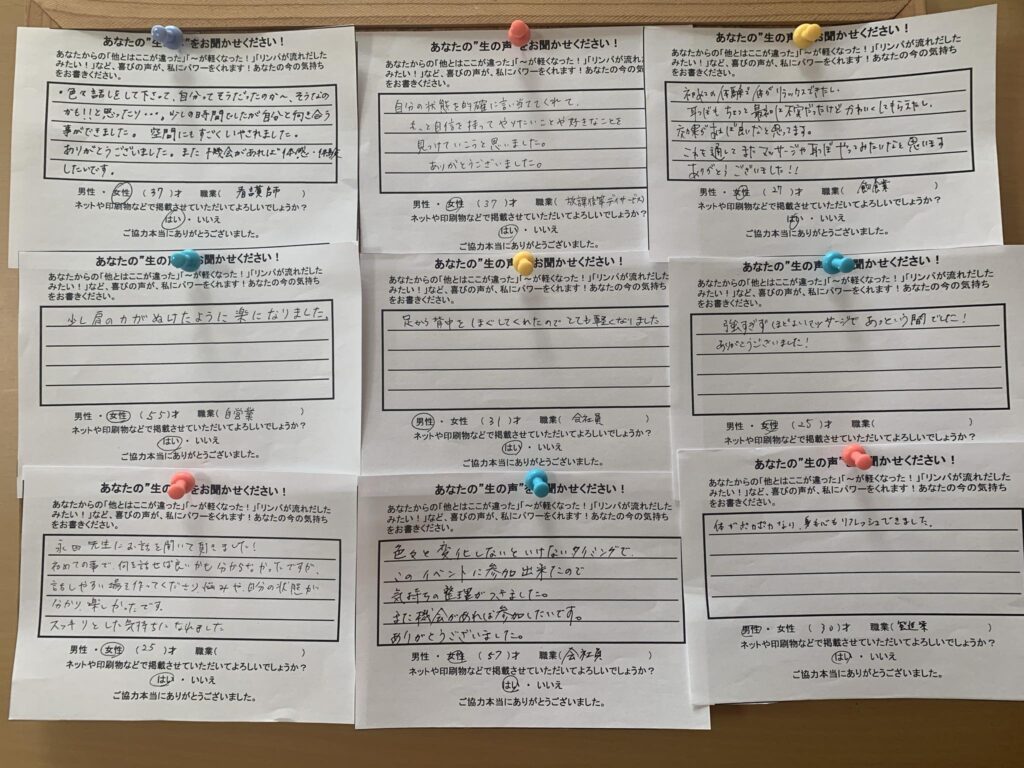 あなたの"生の声"をお聞かせください！
あなたからの「他とはここが違った」「～が軽くなった！」「リンパが流れだした
みたい！」など、喜びの声が、私にパワーをくれます！あなたの今の気持ち
をお書きください。
・色々話しをして下さって、自分ってそうだったのか〜、そうなの
かも!!と思ったり…。少しの時間でしたが自分と向き合う
事ができました。空間にもすごくいやされました。
ありがとうございました。また機会があれば体感・体験
したいです。
男性・女性 (37)才 職業( 看護師 )
ネットや印刷物などで掲載させていただいてよろしいでしょうか？
はい・いいえ
ご協力本当にありがとうございました。
あなたの"生の声"をお聞かせください！
あなたからの「他とはここが違った」「～が軽くなった！」「リンパが流れだした
みたい！」など、喜びの声が、私にパワーをくれます！あなたの今の気持ち
をお書きください。
自分の状態を的確に言い当ててくれて、
もっと自信を持ってやりたいことや好きなことを
見つけていこうと思いました。
ありがとうございました。
男性・女性 (37)才 職業( 放課後等デイサービス
ネットや印刷物などで掲載させていただいてよろしいでしょうか？
はい・いいえ
ご協力本当にありがとうございました。
あなたの"生の声"をお聞かせください！
あなたからの「他とはここが違った」「～が軽くなった！」「リンパが流れだした
みたい！」など、喜びの声が、私にパワーをくれます！あなたの今の気持ち
をお書きください。
初めての体験で体がリラックスできたし、
耳つぼもちょっと最初は不安だったけどかわいくしてもらえたし、
効果があれば良いなと思ってます。
これを通してまたマッサージや耳つぼやってみたいなと思います
ありがとうございました!!
男性・女性 (27)才 職業( 飲食業 )
ネットや印刷物などで掲載させていただいてよろしいでしょうか？
はい・いいえ
ご協力本当にありがとうございました。
あなたの"生の声"をお聞かせください！
あなたからの「他とはここが違った」「～が軽くなった！」「リンパが流れだした
みたい！」など、喜びの声が、私にパワーをくれます！あなたの今の気持ち
をお書きください。
少し肩の力がぬけたように楽になりました。
男性・女性 (55)才 職業( 自営業 )
ネットや印刷物などで掲載させていただいてよろしいでしょうか？
はい・いいえ
ご協力本当にありがとうございました。
あなたの"生の声"をお聞かせください！
あなたからの「他とはここが違った」「～が軽くなった！」「リンパが流れだした
みたい！」など、喜びの声が、私にパワーをくれます！あなたの今の気持ち
をお書きください。
足から背中をほぐしてくれたのでとても軽くなりました
男性・女性 (31)才 職業( 会社員 )
ネットや印刷物などで掲載させていただいてよろしいでしょうか？
はい・いいえ
ご協力本当にありがとうございました。
あなたの"生の声"をお聞かせください！
あなたからの「他とはここが違った」「～が軽くなった！」「リンパが流れだした
みたい！」など、喜びの声が、私にパワーをくれます！あなたの今の気持ち
をお書きください。
強すぎずほどよいマッサージであっという間でした！
ありがとうございました！
男性・女性 (25)才 職業( )
ネットや印刷物などで掲載させていただいてよろしいでしょうか？
はい・いいえ
ご協力本当にありがとうございました。
あなたの"生の声"をお聞かせください！
あなたからの「他とはここが違った」「～が軽くなった！」「リンパが流れだした
みたい！」など、喜びの声が、私にパワーをくれます！あなたの今の気持ち
をお書きください。
永田先生にお話を聞いて頂きました！
初めての事で、何を話せば良いかも分からなかったですが、
話しやすい場を作ってくださり、悩みや、自分の状態が
分かり、楽しかったです。
スッキリとした気持ちになれました
男性・女性 (25)才 職業( )
ネットや印刷物などで掲載させていただいてよろしいでしょうか？
はい・いいえ
ご協力本当にありがとうございました。
あなたの"生の声"をお聞かせください！
あなたからの「他とはここが違った」「～が軽くなった！」「リンパが流れだした
みたい！」など、喜びの声が、私にパワーをくれます！あなたの今の気持ち
をお書きください。
色々と変化しないといけないタイミングで、
このイベントに参加出来たので
気持ちの整理がつきました。
また機会があれば参加したいです。
ありがとうございました。
男性・女性 (57)才 職業( 会社員 )
ネットや印刷物などで掲載させていただいてよろしいでしょうか？
はい・いいえ
ご協力本当にありがとうございました。
あなたの"生の声"をお聞かせください！
あなたからの「他とはここが違った」「～が軽くなった！」「リンパが流れだした
みたい！」など、喜びの声が、私にパワーをくれます！あなたの今の気持ち
をお書きください。
体がぽかぽかなり、身も心もリフレッシュできました。
男性・女性 (30)才 職業( 製造業 )
ネットや印刷物などで掲載させていただいてよろしいでしょうか？
はい・いいえ
ご協力本当にありがとうございました。